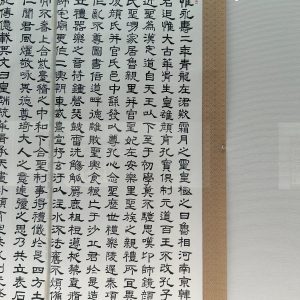 惟永壽二年青龍在涒歎霜月之靈皇極之日魯相河南京韓
君追惟大古華胥生皇雄顏育空寶俱制元道百王不改孔子
近聖為漢定道自天王以下至于初學莫不驥思嘆卬師鏡顏
氏聖舅家居魯親里并官聖妃在安樂里聖族之親禮所宜異
復顏氏并官氏邑中繇發以尊孔心念聖歷世禮樂陵遲秦項
作亂不尊圖書倍道畔德離敗聖輿食糧亡于沙丘君於是造
立禮器樂之音苻鍾磬瑟鼓雷洗觴觚爵鹿柤梪籩柉禁壺脩
飾宅廟更作二輿朝車威熹宣抒玄汙以注水流法舊不煩備
而不奢上合紫臺稽之中和下合聖制事得禮儀於是四方士
仁聞君風燿敬咏其德尊琦大人之意逴彌之思乃共立表石
紀傳億載其文曰皇戲統華胥承天畫卦顏